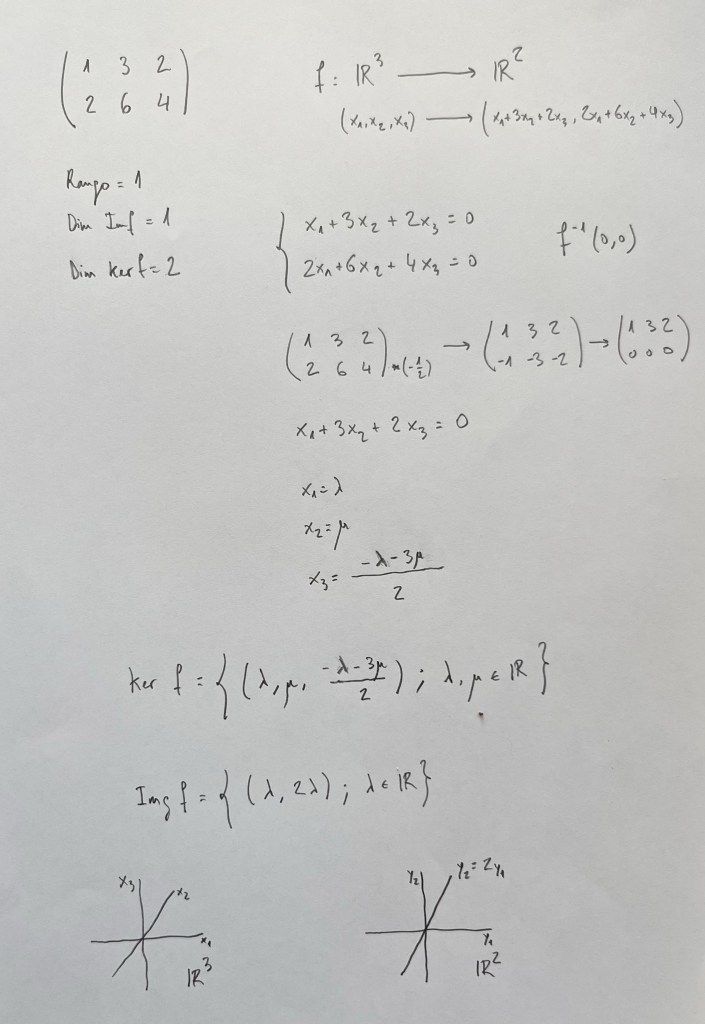 ( 1 3 2 )
( 2 6 4 )
f : ℝ³ ⟶ ℝ²
(x₁, x₂, x₃) ⟶ (x₁+3x₂+2x₃, 2x₁+6x₂+4x₃)
Rango = 1
Dim Imf = 1
Dim Ker f = 2
{ x₁ + 3x₂ + 2x₃ = 0
2x₁ + 6x₂ + 4x₃ = 0
f⁻¹(0,0)
( 1 3 2 ) → ( 1 3 2 ) → ( 1 3 2 )
( 2 6 4 )*(-1/2) ( -1 -3 -2 ) ( 0 0 0 )
x₁ + 3x₂ + 2x₃ = 0
x₁ = λ
x₂ = μ
x₃ = (-λ - 3μ)/2
Ker f = { (λ, μ, (-λ-3μ)/2) ; λ, μ ∈ ℝ }
Img f = { (λ, 2λ) ; λ ∈ ℝ }
x₃
x₂
x₁
ℝ³
y₂
y₂ = 2y₁
y₁
ℝ²